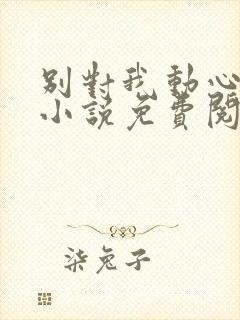 别對我動心
小說免費閱
柒兔子